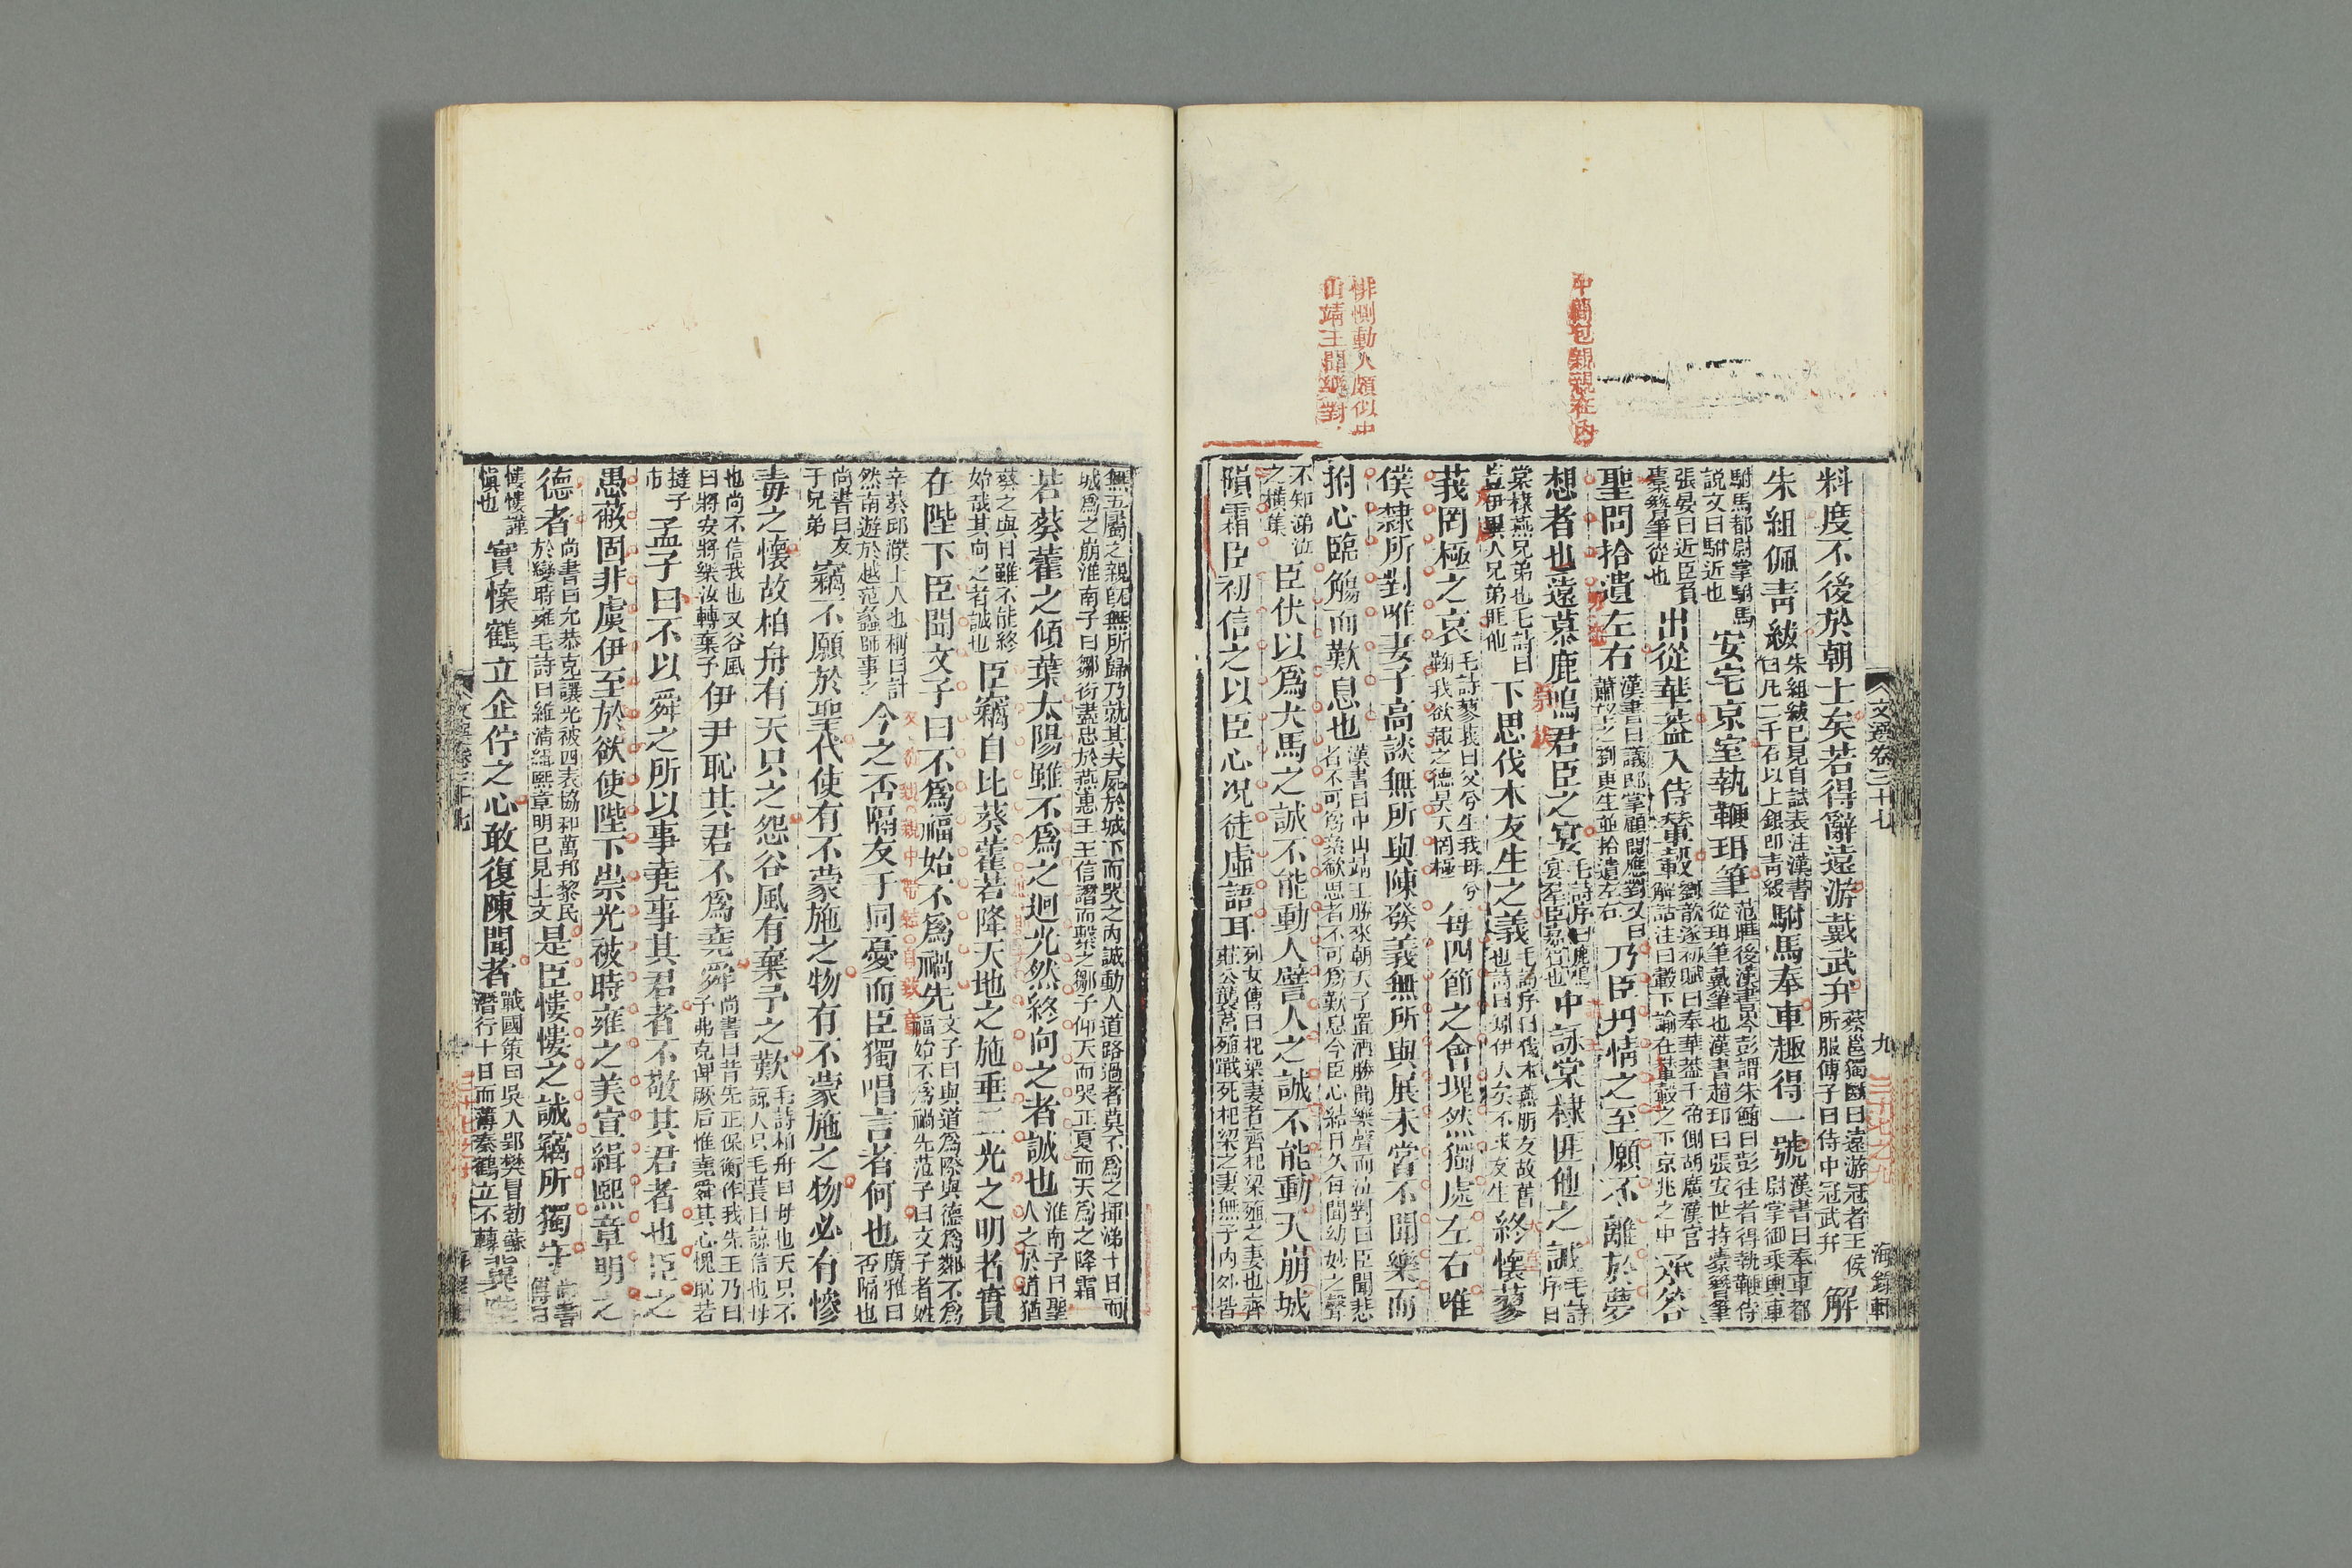 悱惻動人頗似中
山靖王聞樂對
中簡包親親在內
文選卷三十七
九
海錄軒
料度不後於朝士矣若得辭遠游戴武弁蔡邕獨斷曰遠游冠者王侯所服傅子曰侍中冠武弁解
朱組佩青紱朱組紱已見自試表注漢書曰凡二千石以上銀印青綬駙馬奉車趣得一號漢書曰奉車都尉掌御乘輿車
駙馬都尉掌駙馬說文曰駙近也安宅京室執鞭珥筆范曄後漢書岑彭謂朱鮪曰彭往者得執鞭侍從珥筆戴筆也漢書趙卬曰張安世持橐簪筆
張晏曰近臣負橐簪筆從也出從華蓋入侍輦轂劉歆遂初賦曰奉華蓋于帝側胡廣漢官解詁注曰轂下諭在輦轂之下京兆之中承答
聖問拾遺左右漢書曰議郎掌顧問應對又曰蕭望之劉更生並拾遺左右乃臣丹情之至願不離於夢
想者也遠慕鹿鳴君臣之宴毛詩序曰鹿鳴宴羣臣嘉賓也中詠棠棣匪他之誠毛詩序曰
棠棣燕兄弟也毛詩曰豈伊異人兄弟匪他下思伐木友生之義毛詩序曰伐木燕朋友故舊也詩曰矧伊人矣不求友生終懷蓼
莪罔極之哀毛詩蓼莪曰父兮生我母兮鞠我欲報之德昊天罔極每四節之會塊然獨處左右唯
僕隸所對唯妻子高談無所與陳發義無所與展未嘗不聞樂而
拊心臨觴而歎息也漢書曰中山靖王勝來朝天子置酒勝聞樂聲而泣對曰臣聞悲者不可為絫欷思者不可為歎息今臣心結日久每聞幼妙之聲
不知涕泣之橫集臣伏以為犬馬之誠不能動人譬人之誠不能動天崩城
隕霜臣初信之以臣心況徒虛語耳列女傳曰杞梁妻者齊杞梁殖之妻也齊莊公襲莒殖戰死杞梁之妻無子內外皆
無五屬之親既無所歸乃就其夫屍於城下而哭之內諴動人道路過者莫不為之揮涕十日而城為之崩淮南子曰鄒衍盡忠於燕惠王王信譖而繫之鄒子仰天而哭正夏而天為之降霜
若葵藿之傾葉太陽雖不為之迴光然終向之者誠也淮南子曰聖人之於道猶
葵之與日雖不能終始哉其向之者誠也臣竊自比葵藿若降天地之施垂三光之明者實
在陛下臣聞文子曰不為福始不為禍先文子曰與道為際與德為鄰不為福始不為禍先范子曰文子者姓
辛葵邱濮上人也稱曰計然南遊於越范蠡師事之今之否隔友于同憂而臣獨唱言者何也廣雅曰否隔也
尚書曰友于兄弟竊不願於聖代使有不蒙施之物有不蒙施之物必有慘
毒之懷故柏舟有天只之怨谷風有棄予之歎毛詩柏舟曰母也天只不諒人只毛萇曰諒信也母
也尚不信我也又谷風曰將安將樂汝轉棄予伊尹恥其君不為堯舜尚書曰昔先正保衡作我先王乃曰予弗克俾厥后惟堯舜其心愧恥若
撻于市孟子曰不以舜之所以事堯事其君者不敬其君者也臣之
愚蔽固非虞伊至於欲使陛下崇光被時雍之美宣緝熙章明之
德者尚書曰允恭克讓光被四表協和萬邦黎民於變時雍毛詩曰維清緝熙章明已見上文是臣慺慺之誠竊所獨守尚書傳曰
慺慺謹慎也實懷鶴立企佇之心敢復陳聞者戰國策曰吳人郢樊冒勃蘇潛行十日而薄秦鶴立不轉冀陛